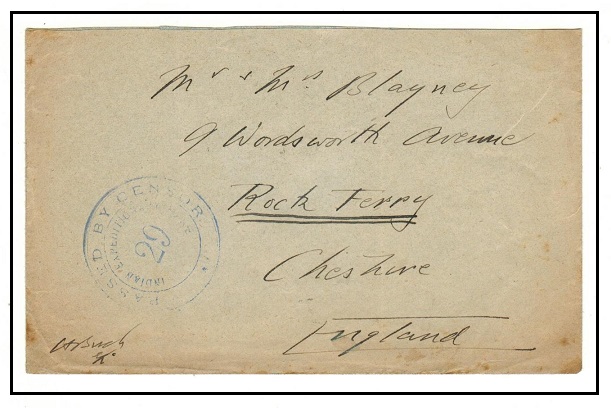 Mr & Mrs Blayney
9 Wordsworth Avenue
Rock Ferry
Cheshire
England
PASSED BY CENSOR
INDIAN EXPEDITIONARY
29